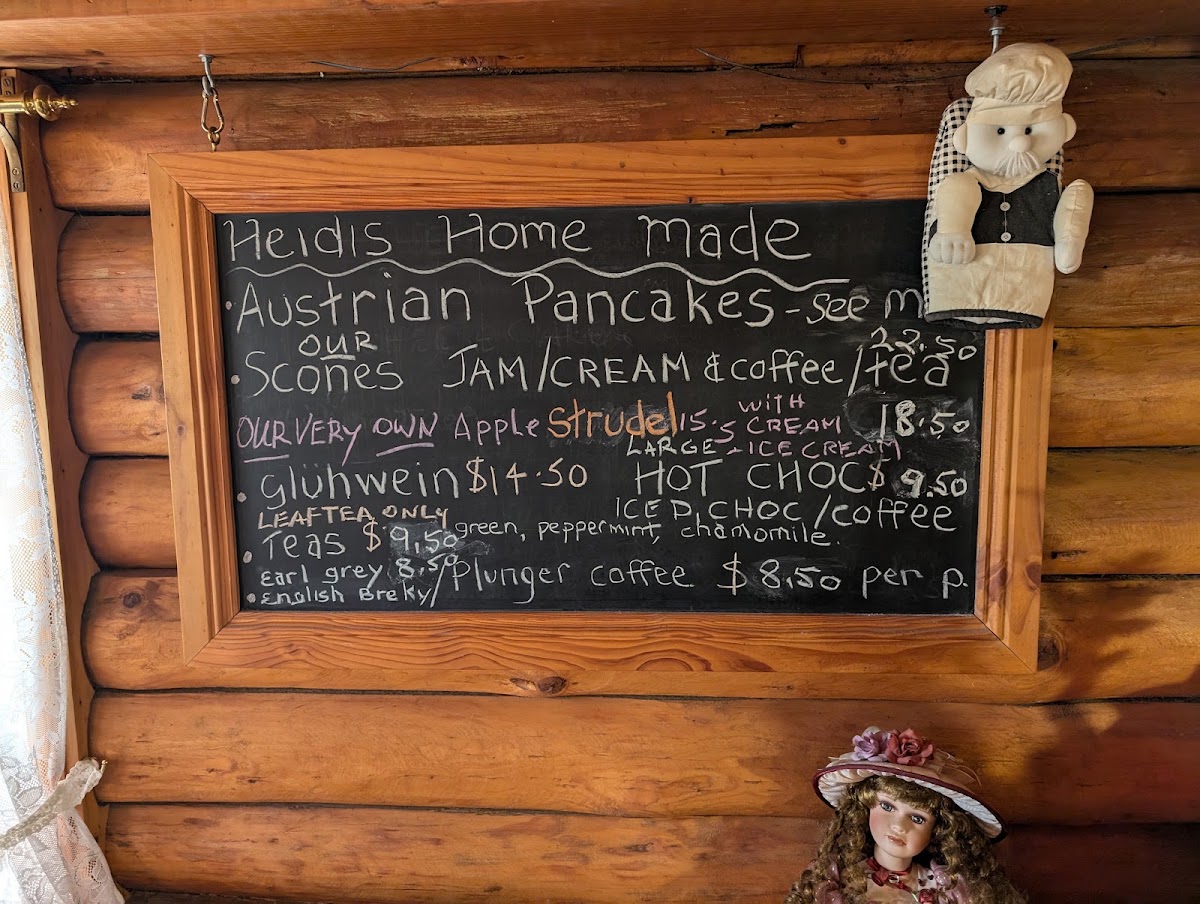 Heidis Home made
Austrian Pancakes - see
22.50
OUR
Scones JAM/CREAM & coffee/tea
WITH
OUR VERY OWN Apple Strudel 15.5 CREAM 18.50
LARGE + ICE CREAM
glühwein $14.50 HOT CHOC $9.50
LEAF TEA ONLY ICED CHOC/coffee
Teas $9.50 green, peppermint, chamomile.
Earl grey 8.50/Plunger coffee $8.50 per p.
English Breky